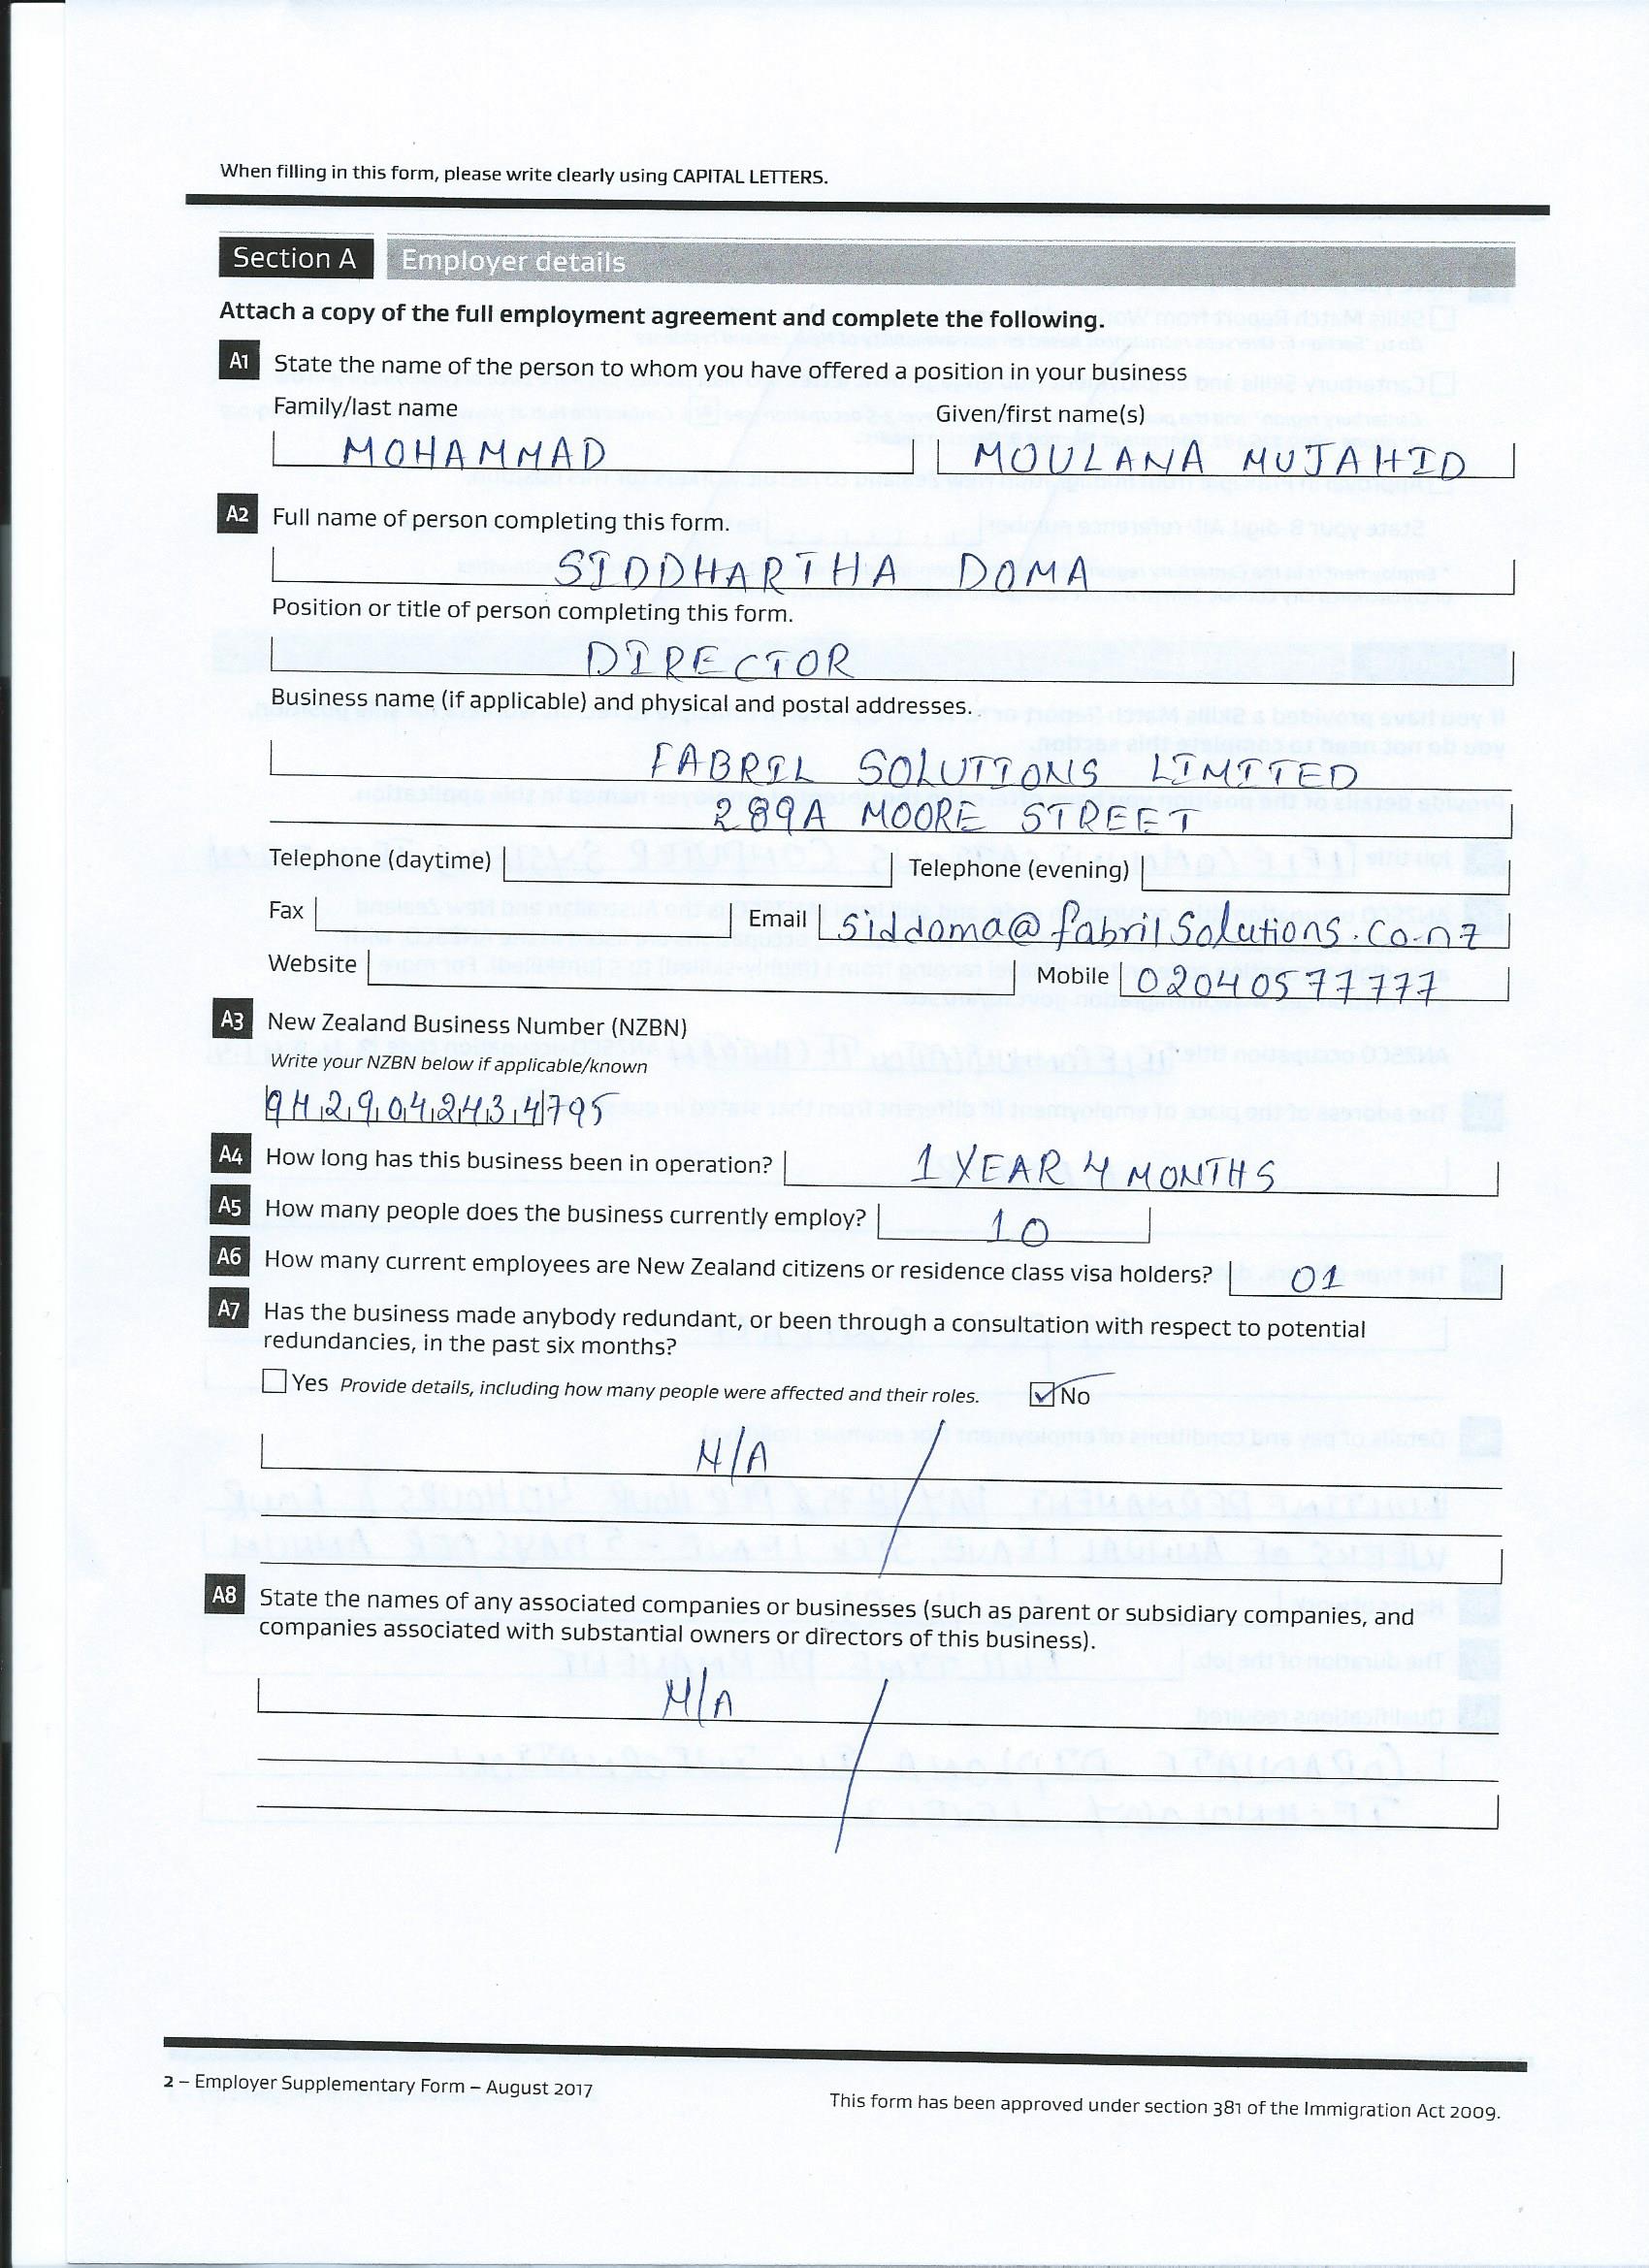 When filling in this form, please write clearly using CAPITAL LETTERS.
Section A Employer details
Attach a copy of the full employment agreement and complete the following.
A1 State the name of the person to whom you have offered a position in your business
Family/last name Given/first name(s)
MOHAMMAD MOULANA MUJAHID
A2 Full name of person completing this form.
SIDDHARTHA DOMA
Position or title of person completing this form.
DIRECTOR
Business name (if applicable) and physical and postal addresses.
FABRIL SOLUTIONS LIMITED
289A MOORE STREET
Telephone (daytime) Telephone (evening)
Fax Email siddoma@fabrilsolutions.co.nz
Website Mobile 02040577777
A3 New Zealand Business Number (NZBN)
Write your NZBN below if applicable/known
9429042434795
A4 How long has this business been in operation? 1 YEAR 4 MONTHS
A5 How many people does the business currently employ? 10
A6 How many current employees are New Zealand citizens or residence class visa holders? 01
A7 Has the business made anybody redundant, or been through a consultation with respect to potential
redundancies, in the past six months?
Yes Provide details, including how many people were affected and their roles. No
N/A
A8 State the names of any associated companies or businesses (such as parent or subsidiary companies, and
companies associated with substantial owners or directors of this business).
N/A
2 – Employer Supplementary Form – August 2017
This form has been approved under section 381 of the Immigration Act 2009.